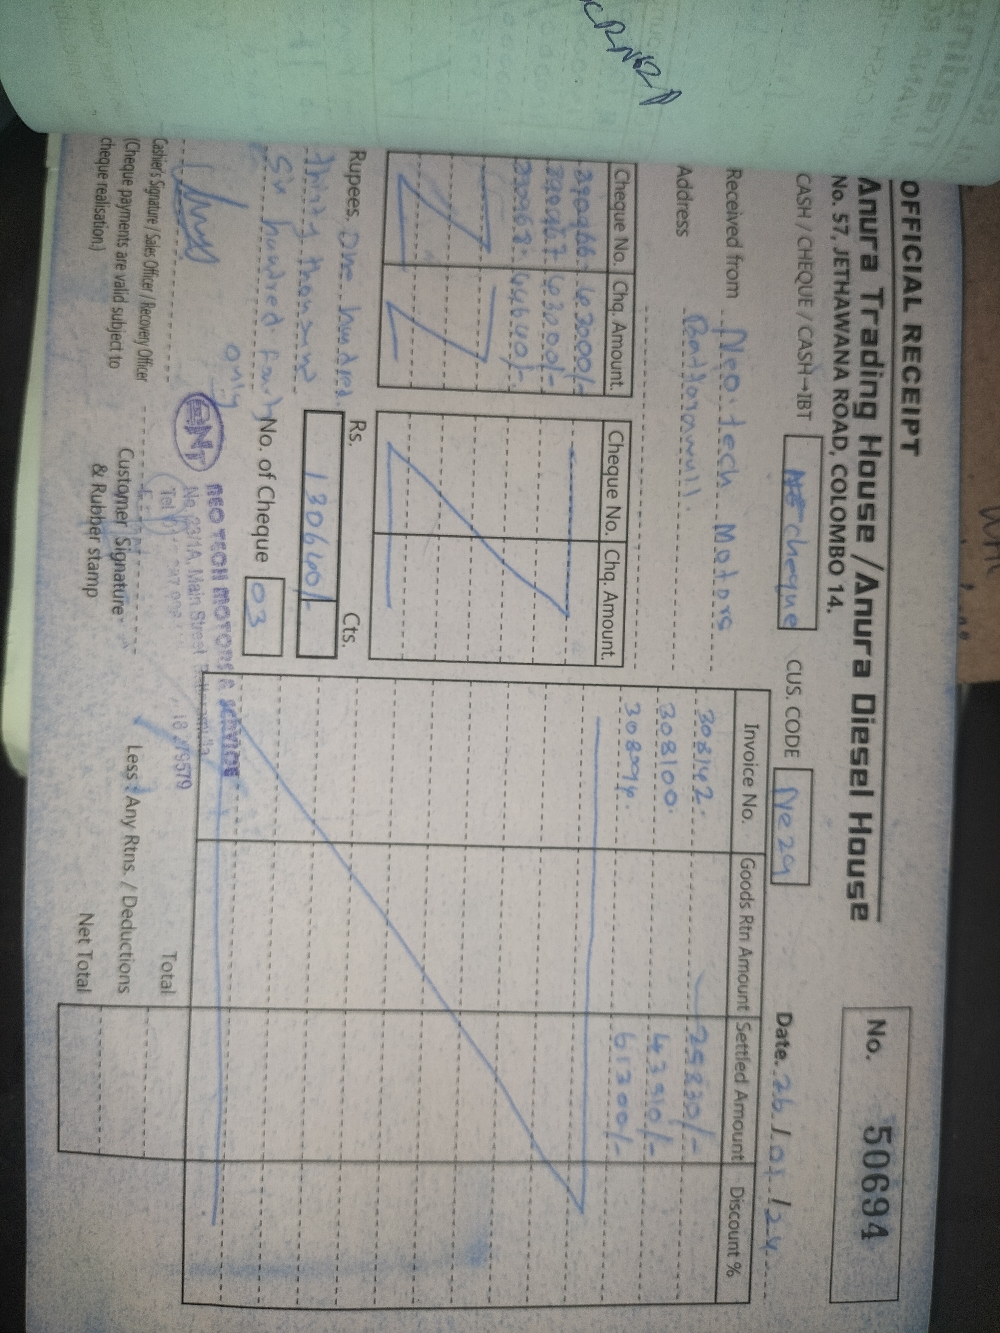 OFFICIAL RECEIPT
No. 50694
Anura Trading House /Anura Diesel House
No. 57, JETHAWANA ROAD, COLOMBO 14.
CASH / CHEQUE / CASH→IBT cheque CUS. CODE Ne29 Date. 26/01/24
Received from Neo tech Motors
Address
Cheque No. Chq. Amount.
390966 43000/-
390967 43000/-
390968 44640/-
Cheque No. Chq. Amount.
Invoice No. Goods Rtn Amount Settled Amount Discount %
308142. 25830/-
308100. 43510/-
308094. 61300/-
Rupees. One hundred
thirty thousand
Six hundred forty
only
Rs. Cts.
130640/-
No. of Cheque 03
NEO TECH MOTORS & SERVICE
No. 93/1A, Main Street
Cashier's Signature / Sales Officer / Recovery Officer
(Cheque payments are valid subject to
cheque realisation.)
Customer Signature
& Rubber stamp
Total
Less : Any Rtns. / Deductions
Net Total